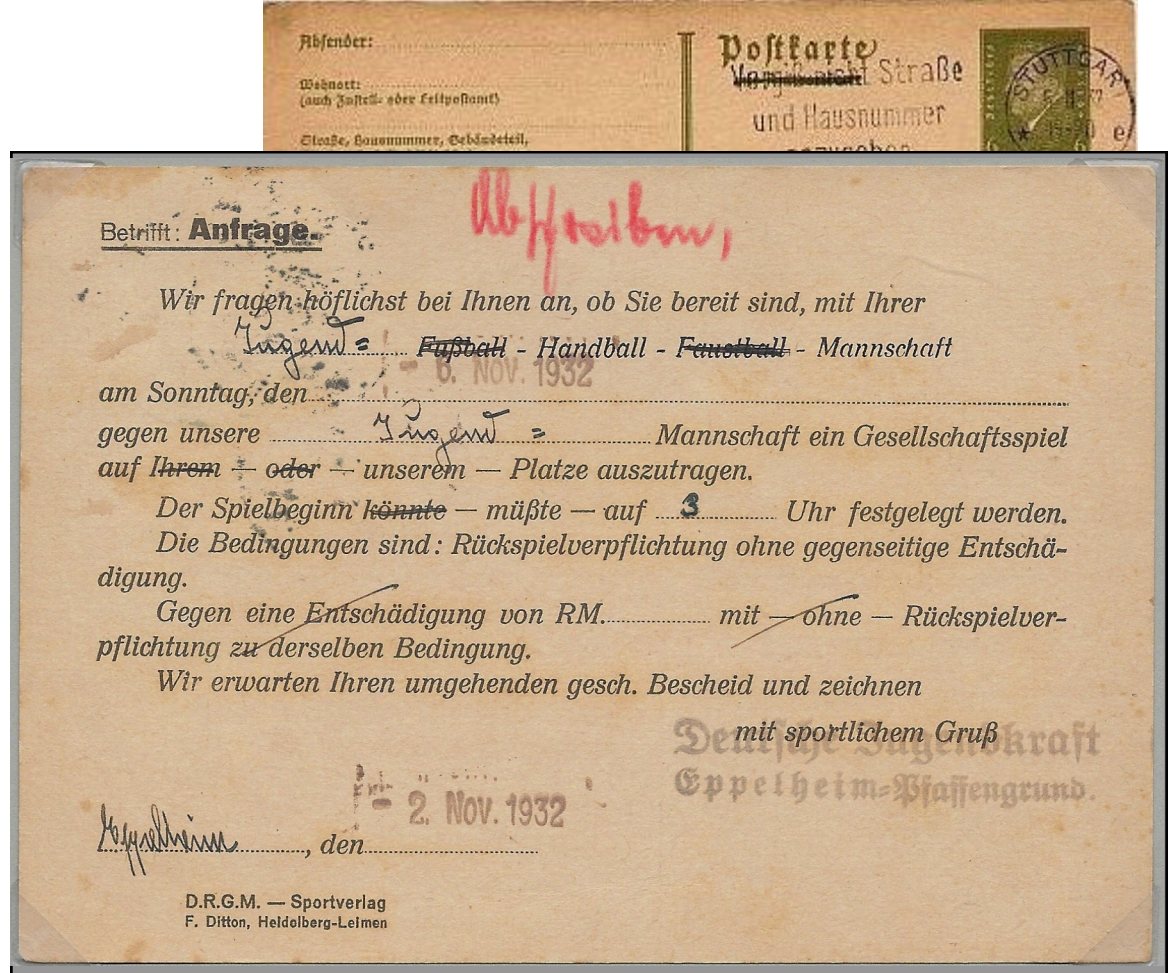 Absender:
Wohnort:
(auch Zustell- oder Leitpostamt)
Straße, Hausnummer, Gebäudeteil,
Postkarte
Vergiß nicht Straße
und Hausnummer
anzugeben
STUTTGART
e
Betrifft: Anfrage.
Abschreiben,
Wir fragen höflichst bei Ihnen an, ob Sie bereit sind, mit Ihrer
Jugend= Fußball - Handball - Faustball - Mannschaft
- 6. NOV. 1932
am Sonntag, den
gegen unsere Jugend = Mannschaft ein Gesellschaftsspiel
auf Ihrem — oder — unserem — Platze auszutragen.
Der Spielbeginn könnte — müßte — auf 3 Uhr festgelegt werden.
Die Bedingungen sind: Rückspielverpflichtung ohne gegenseitige Entschä-
digung.
Gegen eine Entschädigung von RM. mit — ohne — Rückspielver-
pflichtung zu derselben Bedingung.
Wir erwarten Ihren umgehenden gesch. Bescheid und zeichnen
mit sportlichem Gruß
Deutsche Jugendkraft
Eppelheim-Pfaffengrund.
- 2. NOV. 1932
Eppelheim, den
D.R.G.M. — Sportverlag
F. Ditton, Heidelberg-Leimen